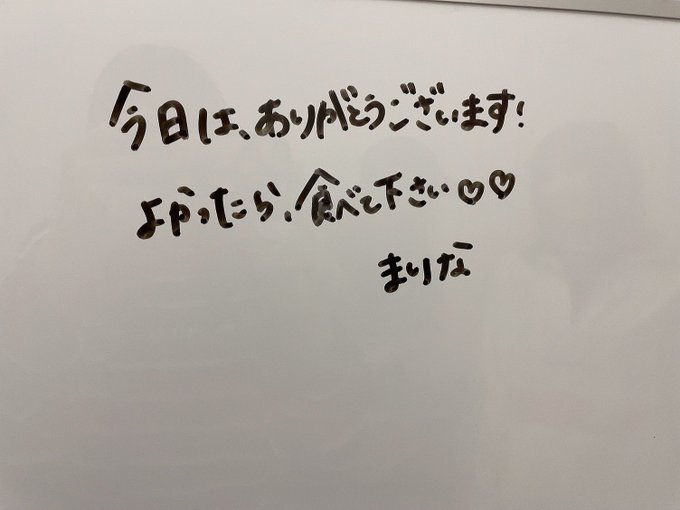 今日は、ありがとうございます!
よかったら、食べて下さい♡♡
まりな